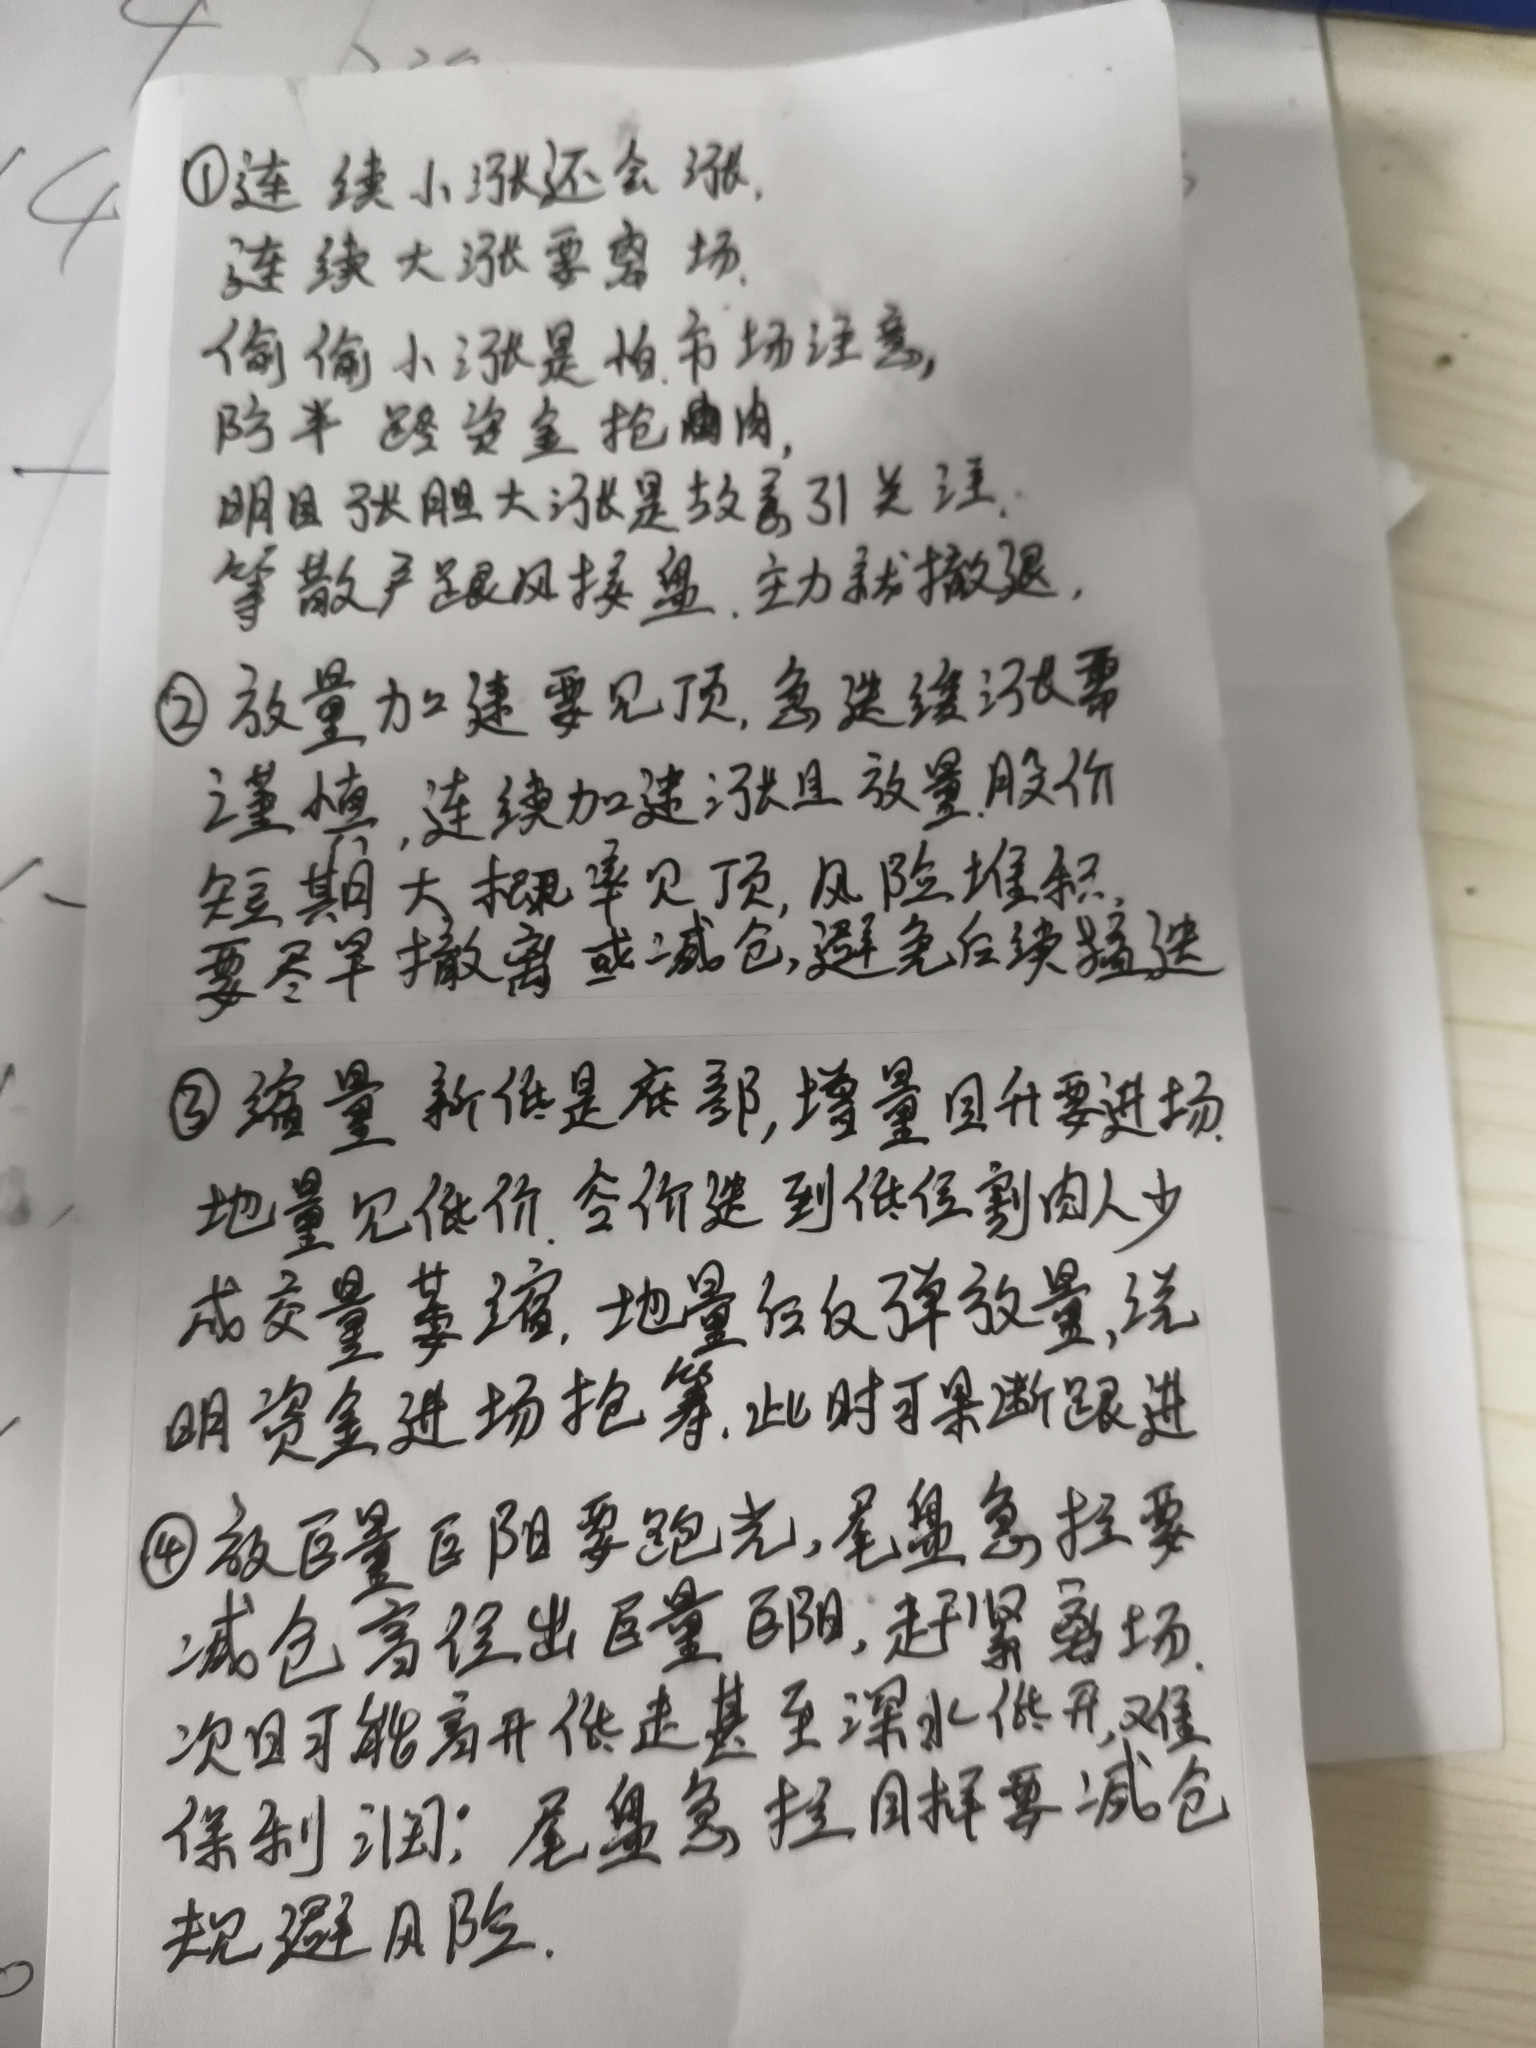 ①连续小涨还会涨.
连续大涨要离场.
偷偷小涨是怕市场注意,
防半路资金抢肉,
明目张胆大涨是故意引关注.
等散户跟风接盘.主力就撤退.
②放量加速要见顶.急迭缓涨需
谨慎,连续加速涨且放量.股价
短期大概率见顶,风险堆积.
要尽早撤离或减仓,避免后续猛迭
③缩量新低是底部,增量回升要进场.
地量见低价.谷价迭到低位割肉人少
成交量萎缩.地量后反弹放量,说
明资金进场抢筹.此时可果断跟进
④放巨量巨阳要跑光,尾盘急拉要
减仓高位出巨量巨阳,赶紧离场.
次日可能高开低走甚至深水低开,难
保利润;尾盘急拉同样要减仓
规避风险.